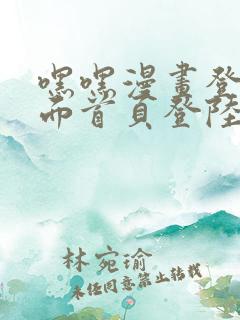 嘿嘿漫畫登
面首頁登陸
林宛瑜
未經同意禁止轉載